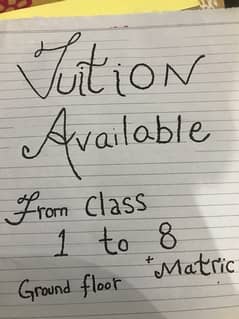 Tuition
Available
From class
1 to 8
+ Matric
Ground floor